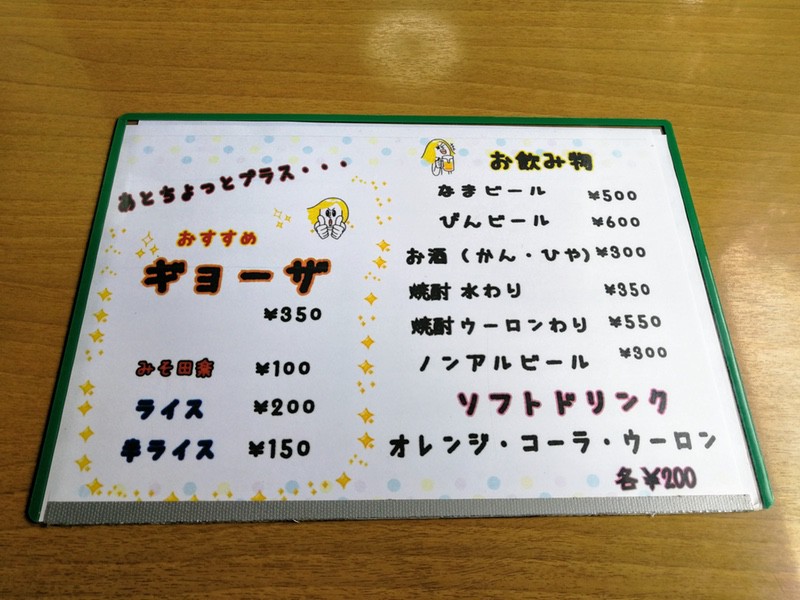 あとちょっとプラス・・・
おすすめ
ギョーザ
¥350
みそ田楽 ¥100
ライス ¥200
半ライス ¥150
お飲み物
なまビール ¥500
びんビール ¥600
お酒(かん・ひや) ¥300
焼酎 水わり ¥350
焼酎ウーロンわり ¥550
ノンアルビール ¥300
ソフトドリンク
オレンジ・コーラ・ウーロン
各¥200